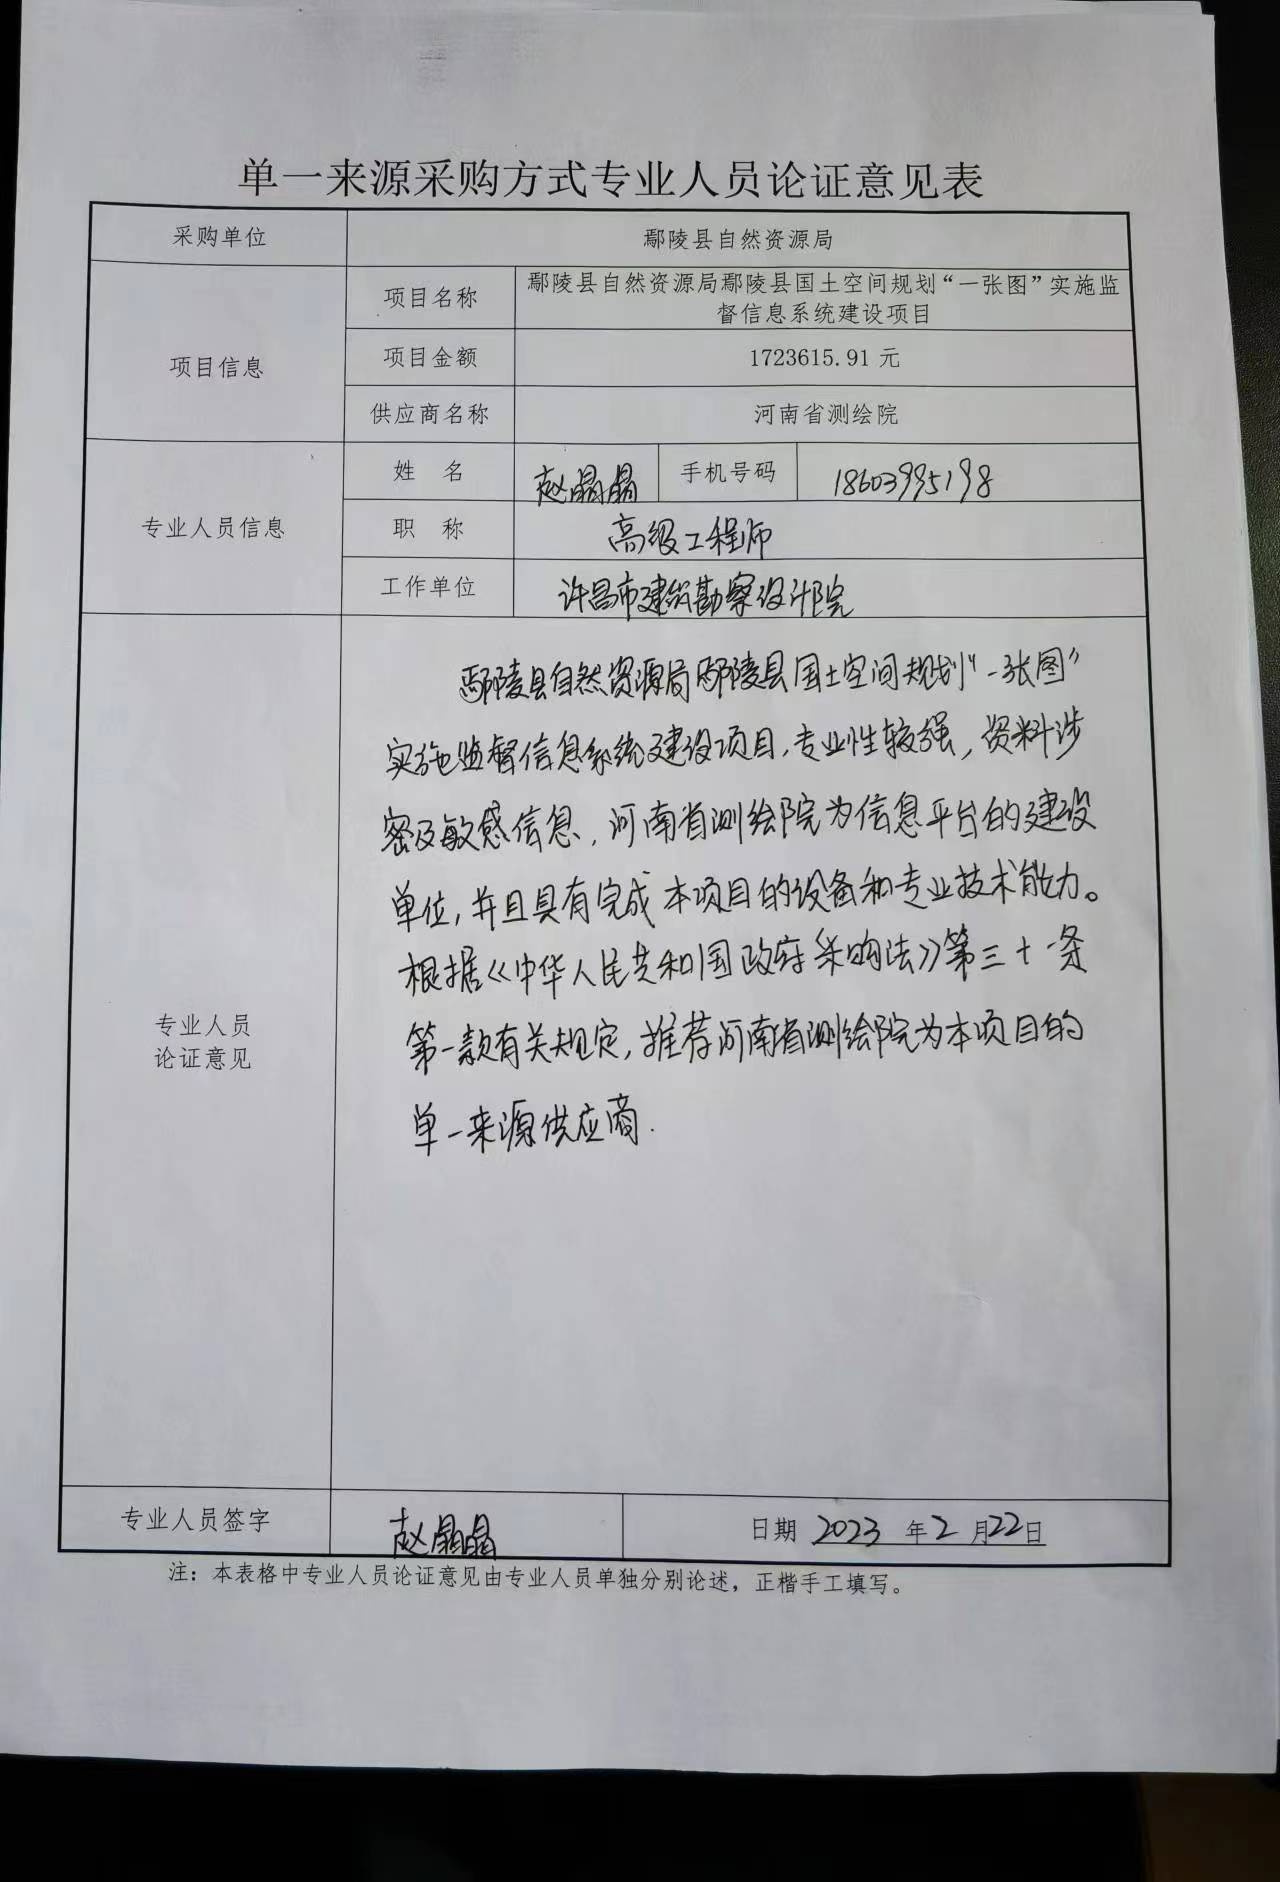 单一来源采购方式专业人员论证意见表
采购单位 鄢陵县自然资源局
项目信息
项目名称 鄢陵县自然资源局鄢陵县国土空间规划“一张图”实施监
督信息系统建设项目
项目金额 1723615.91 元
供应商名称 河南省测绘院
专业人员信息
姓 名 赵晶晶 手机号码 18603995198
职 称 高级工程师
工作单位 许昌市建筑勘察设计院
专业人员
论证意见
鄢陵县自然资源局鄢陵县国土空间规划“一张图”
实施监督信息系统建设项目,专业性较强,资料涉
密及敏感信息,河南省测绘院为信息平台的建设
单位,并且具有完成本项目的设备和专业技术能力。
根据《中华人民共和国政府采购法》第三十一条
第一款有关规定,推荐河南省测绘院为本项目的
单一来源供应商.
专业人员签字 赵晶晶 日期 2023 年 2 月 22 日
注：本表格中专业人员论证意见由专业人员单独分别论述，正楷手工填写。